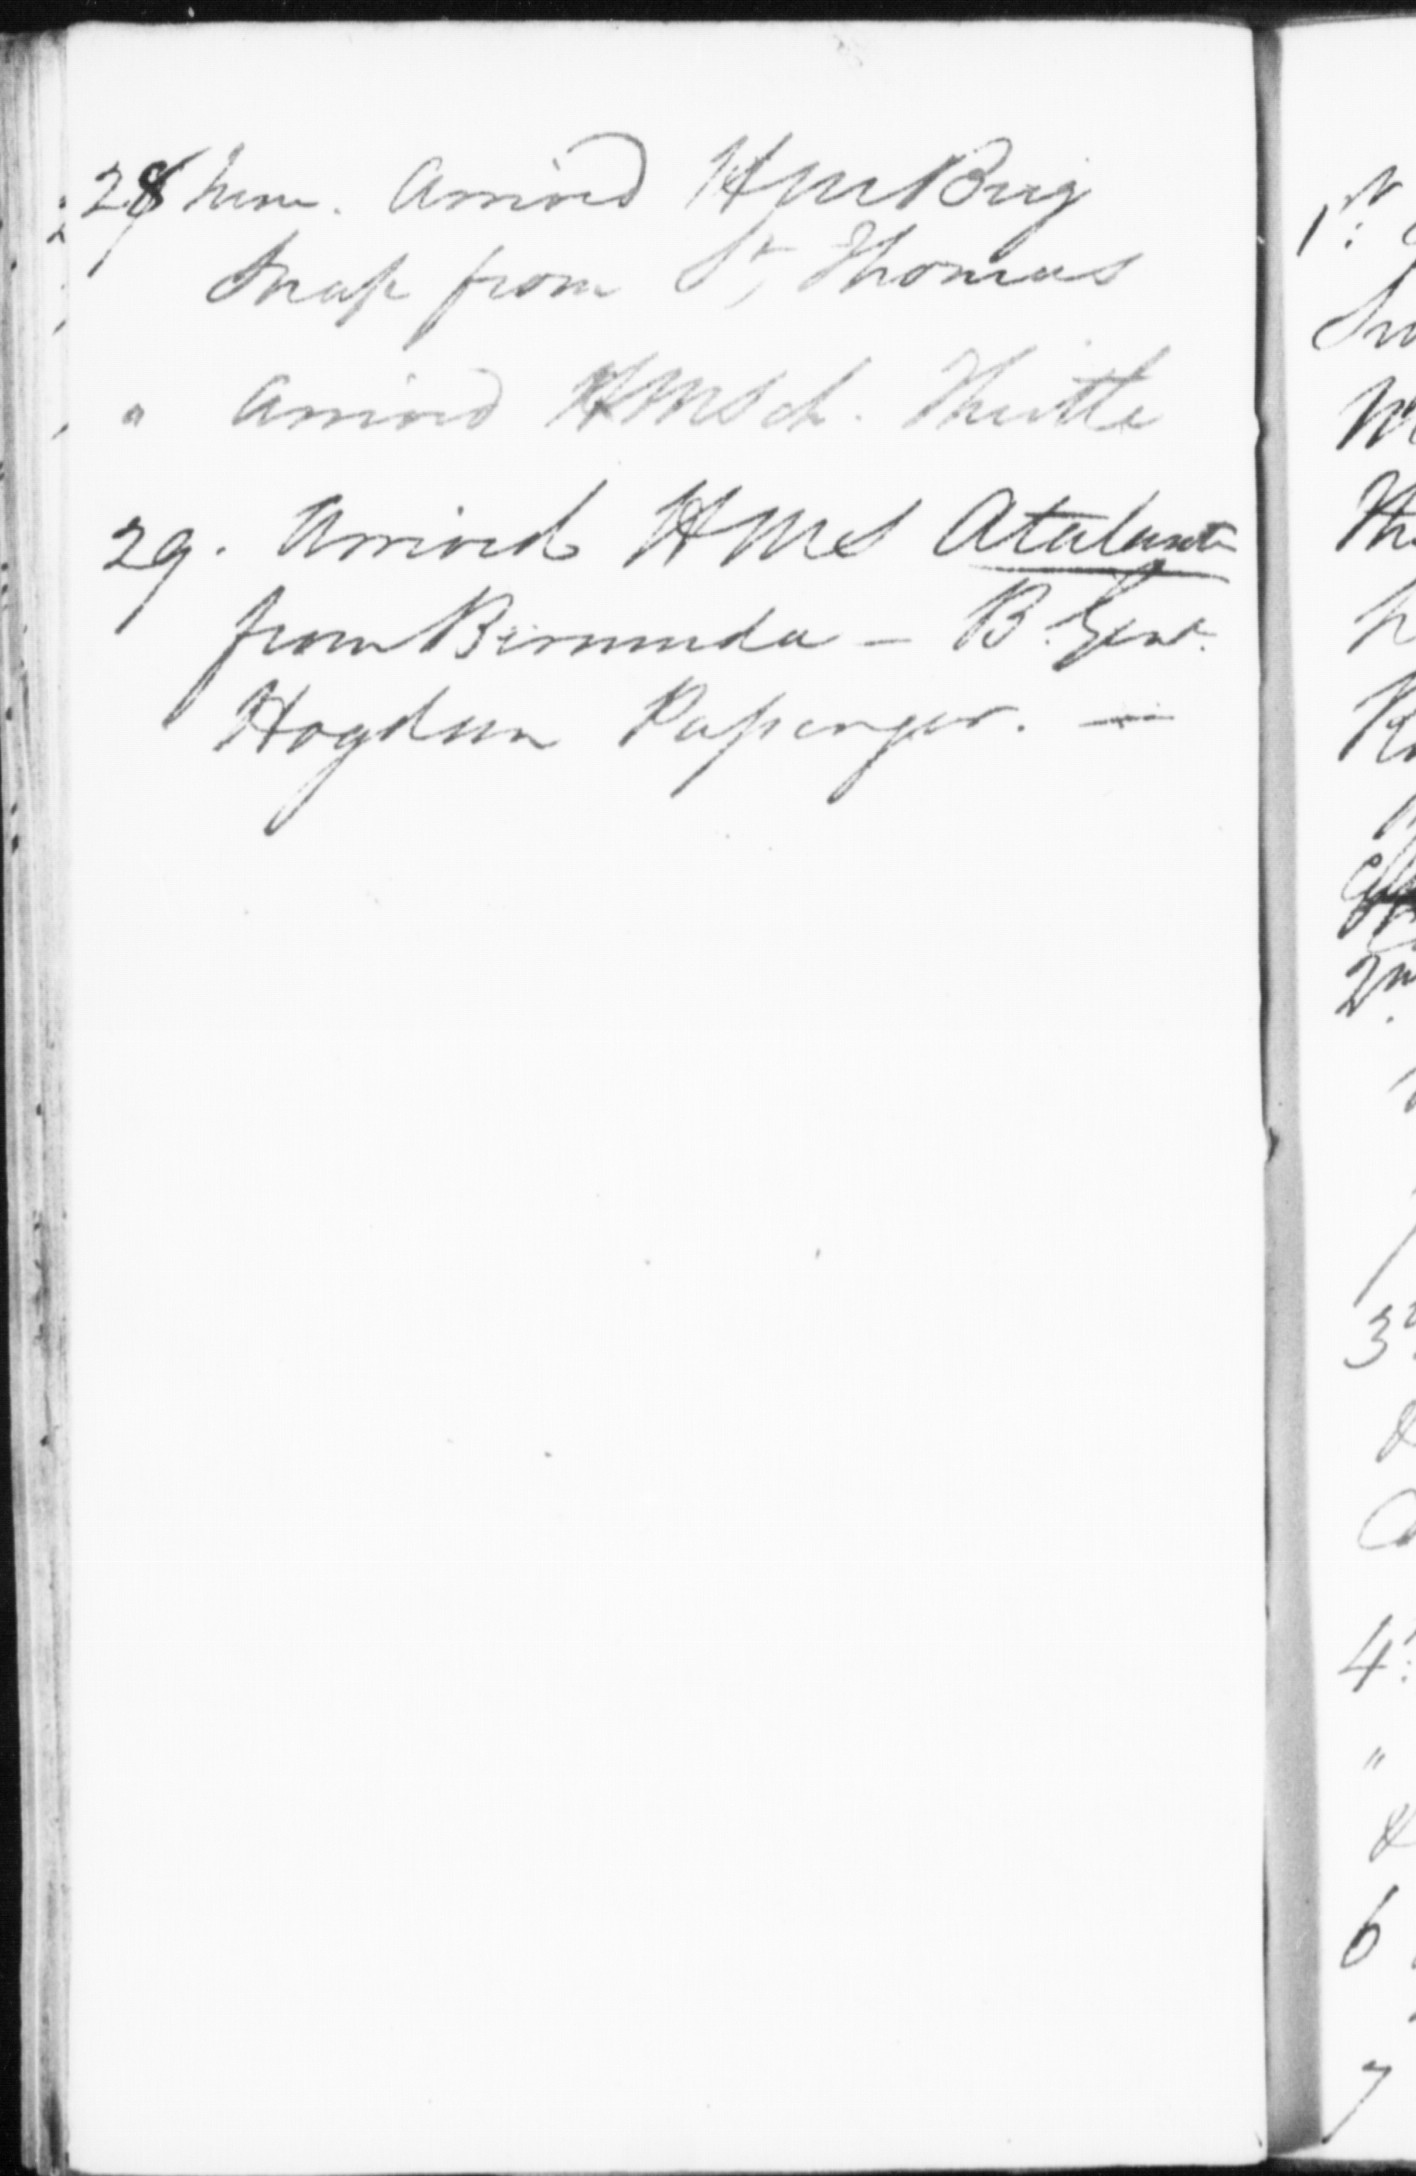 28 June. Arrived HM Brig
Snap from St, Thomas
" Arrived HMSch. Thistle
29. Arrived HMS Atalante
from Bermuda — B. Genl.
Hogdson Passenger. —
1st
2n
3
4
"
&
6
7